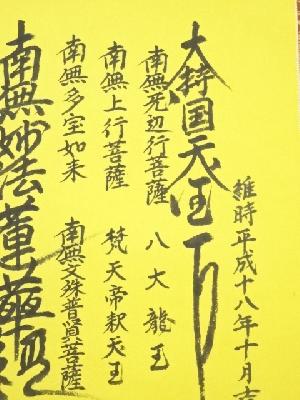 維時平成十八年十月吉
大持国天王
南無无辺行菩薩
八大龍王
南無上行菩薩
梵天帝釈天王
南無多宝如来
南無文殊普賢菩薩
南無妙法蓮華経